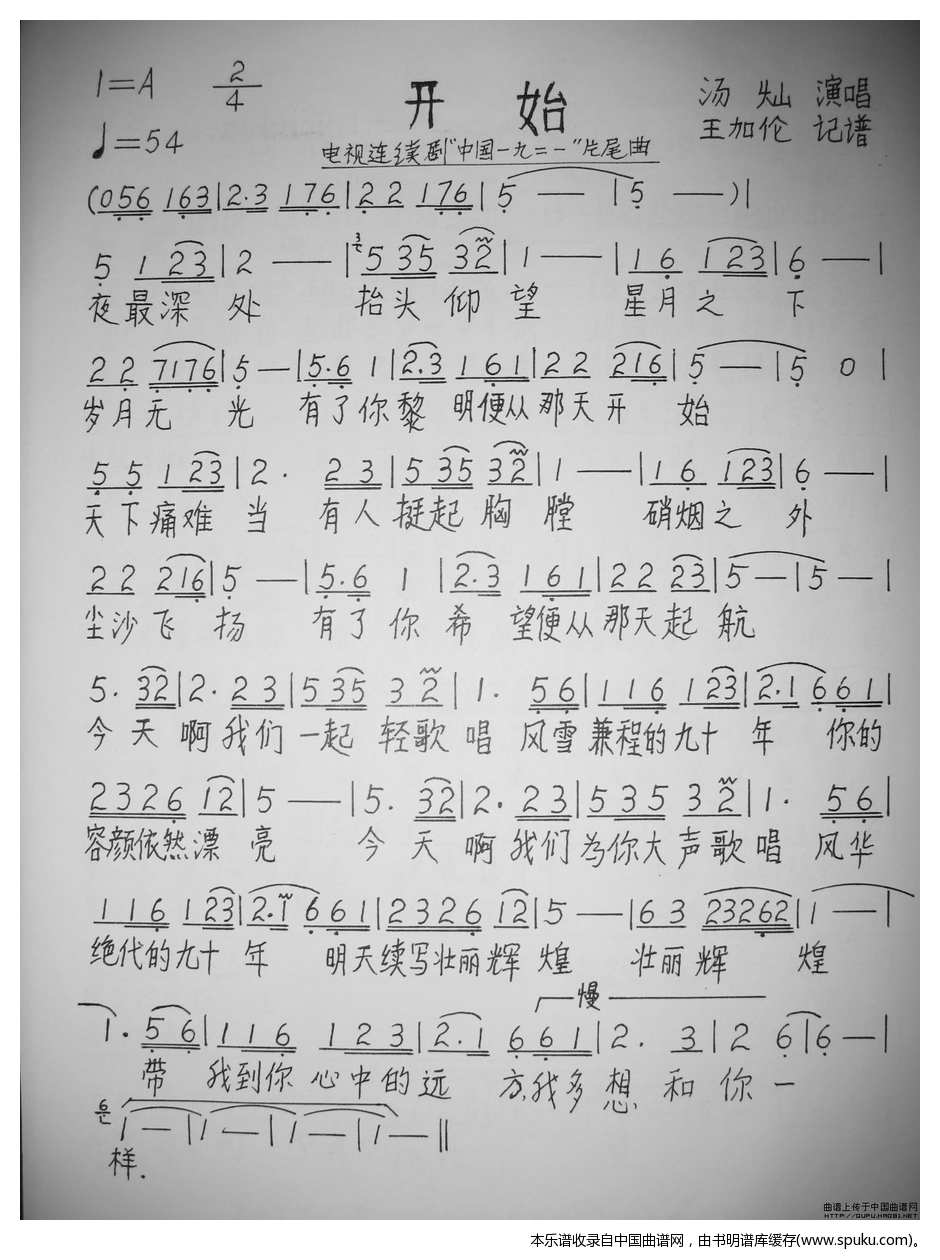 1=A 2/4
♩=54
开 始
汤 灿 演唱
王加伦 记谱
电视连续剧"中国一九二一"片尾曲
(056 163|2.3 176|2 2 176|5 — |5 — )|
5 1 23|2 — |5 35 32|1 — |1 6 1 23|6 — |
夜最深 处 抬头 仰 望 星月之 下
2 2 7176|5 — |5.6 1|2.3 1 6 1|2 2 216|5 — |5 0|
岁月无 光 有了你黎 明便从那天开 始
5 5 1 23|2. 2 3|5 35 32|1 — |1 6 1 23|6 — |
天下痛难 当 有人 挺起 胸 膛 硝烟之 外
2 2 216|5 — |5.6 1 |2.3 1 6 1|2 2 23|5 — |5 — |
尘沙飞 扬 有了你 希 望便从那天起 航
5. 32|2. 2 3|5 35 3 2|1. 5 6|1 1 6 1 23|2.1 6 6 1|
今 天 啊我们 一起 轻歌 唱 风雪兼程的九十 年 你的
2 3 2 6 12|5 — |5. 32|2. 2 3|5 3 5 3 2|1. 5 6|
容颜依然漂 亮 今 天 啊我们为你大声歌唱 风华
1 1 6 1 23|2.1 6 6 1|2 3 2 6 12|5 — |6 3 23262|1 — |
绝代的九十 年 明天续写壮丽辉 煌 壮丽辉 煌
慢
1. 5 6|1 1 6 1 2 3|2.1 6 6 1|2. 3|2 6|6 — |
带 我到你 心中的远 方我多想 和 你 一
1 — |1 — |1 — |1 — ||
样.
曲谱上传于中国曲谱网
HTTP://QUPU.HAO81.NET
本乐谱收录自中国曲谱网，由书明谱库缓存(www.spuku.com)。